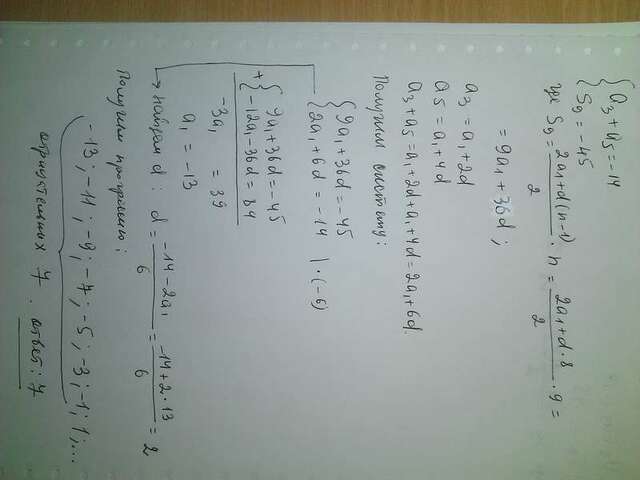 { a₃ + a₅ = -14
{ S₉ = -45
где S₉ = (2a₁ + d(n-1))/2 · n = (2a₁ + d·8)/2 · 9 =
= 9a₁ + 36d ;
a₃ = a₁ + 2d
a₅ = a₁ + 4d
a₃ + a₅ = a₁ + 2d + a₁ + 4d = 2a₁ + 6d.
Получили систему:
{ 9a₁ + 36d = -45
{ 2a₁ + 6d = -14 | · (-6)
+ { 9a₁ + 36d = -45
{ -12a₁ - 36d = 84
-3a₁ = 39
a₁ = -13
→ найдем d : d = (-14 - 2a₁)/6 = (-14 + 2·13)/6 = 2
Получили прогрессию :
-13 ; -11 ; -9 ; -7 ; -5 ; -3 ; -1 ; 1 ; ...
отрицательных 7 . ответ : 7